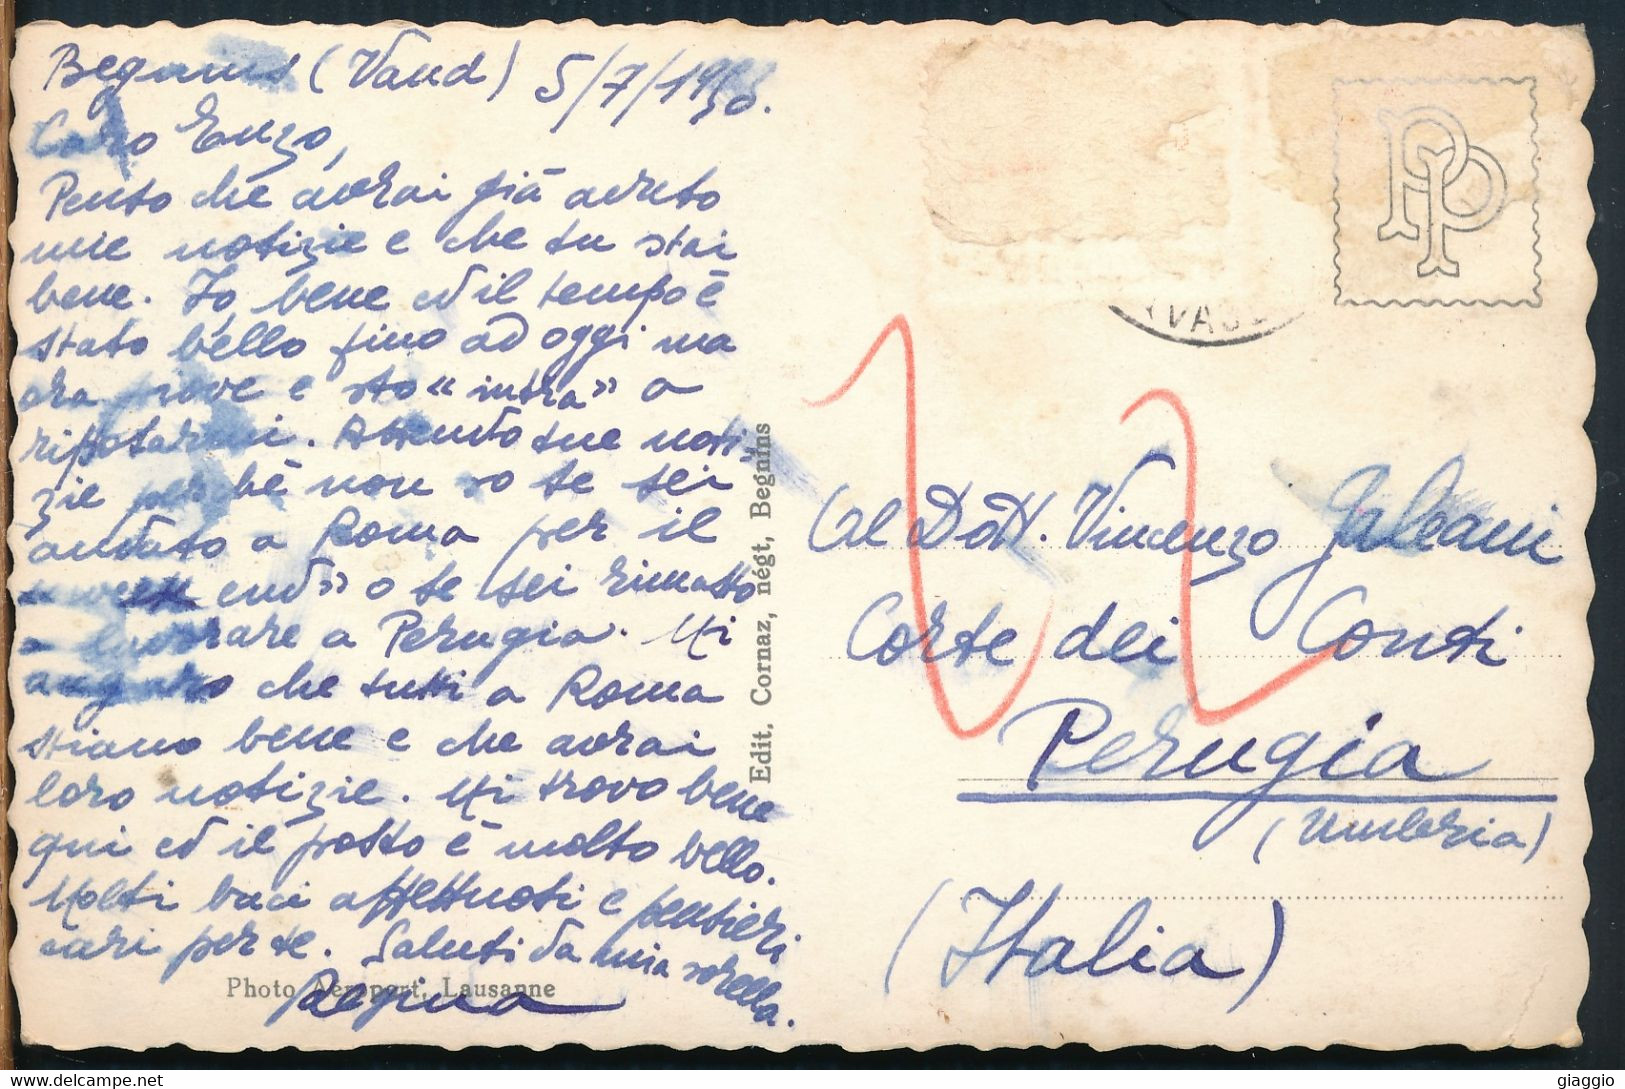 Begnins (Vaud) 5/7/195
Caro Enzo,
Penso che avrai già avuto
mie notizie e che tu stai
bene. Io, bene ed il tempo è
stato bello fino ad oggi ma
ora piove e sto «intra» a
riposarmi. Attendo tue noti-
zie perché non so se sei
andato a Roma per il
«week end» o se sei rimasto
a lavorare a Perugia. Mi
auguro che tutti a Roma
stiano bene e che avrai
loro notizie. Mi trovo bene
qui ed il posto è molto bello.
Molti baci affettuosi e pensieri
cari per te. Saluti da mia sorella.
Regina
Photo Aéroport, Lausanne
Edit. Cornaz, négt, Begnins
PP
Al Dott. Vincenzo Galeani
Corte dei Conti
Perugia
(Umbria)
(Italia)
giaggio